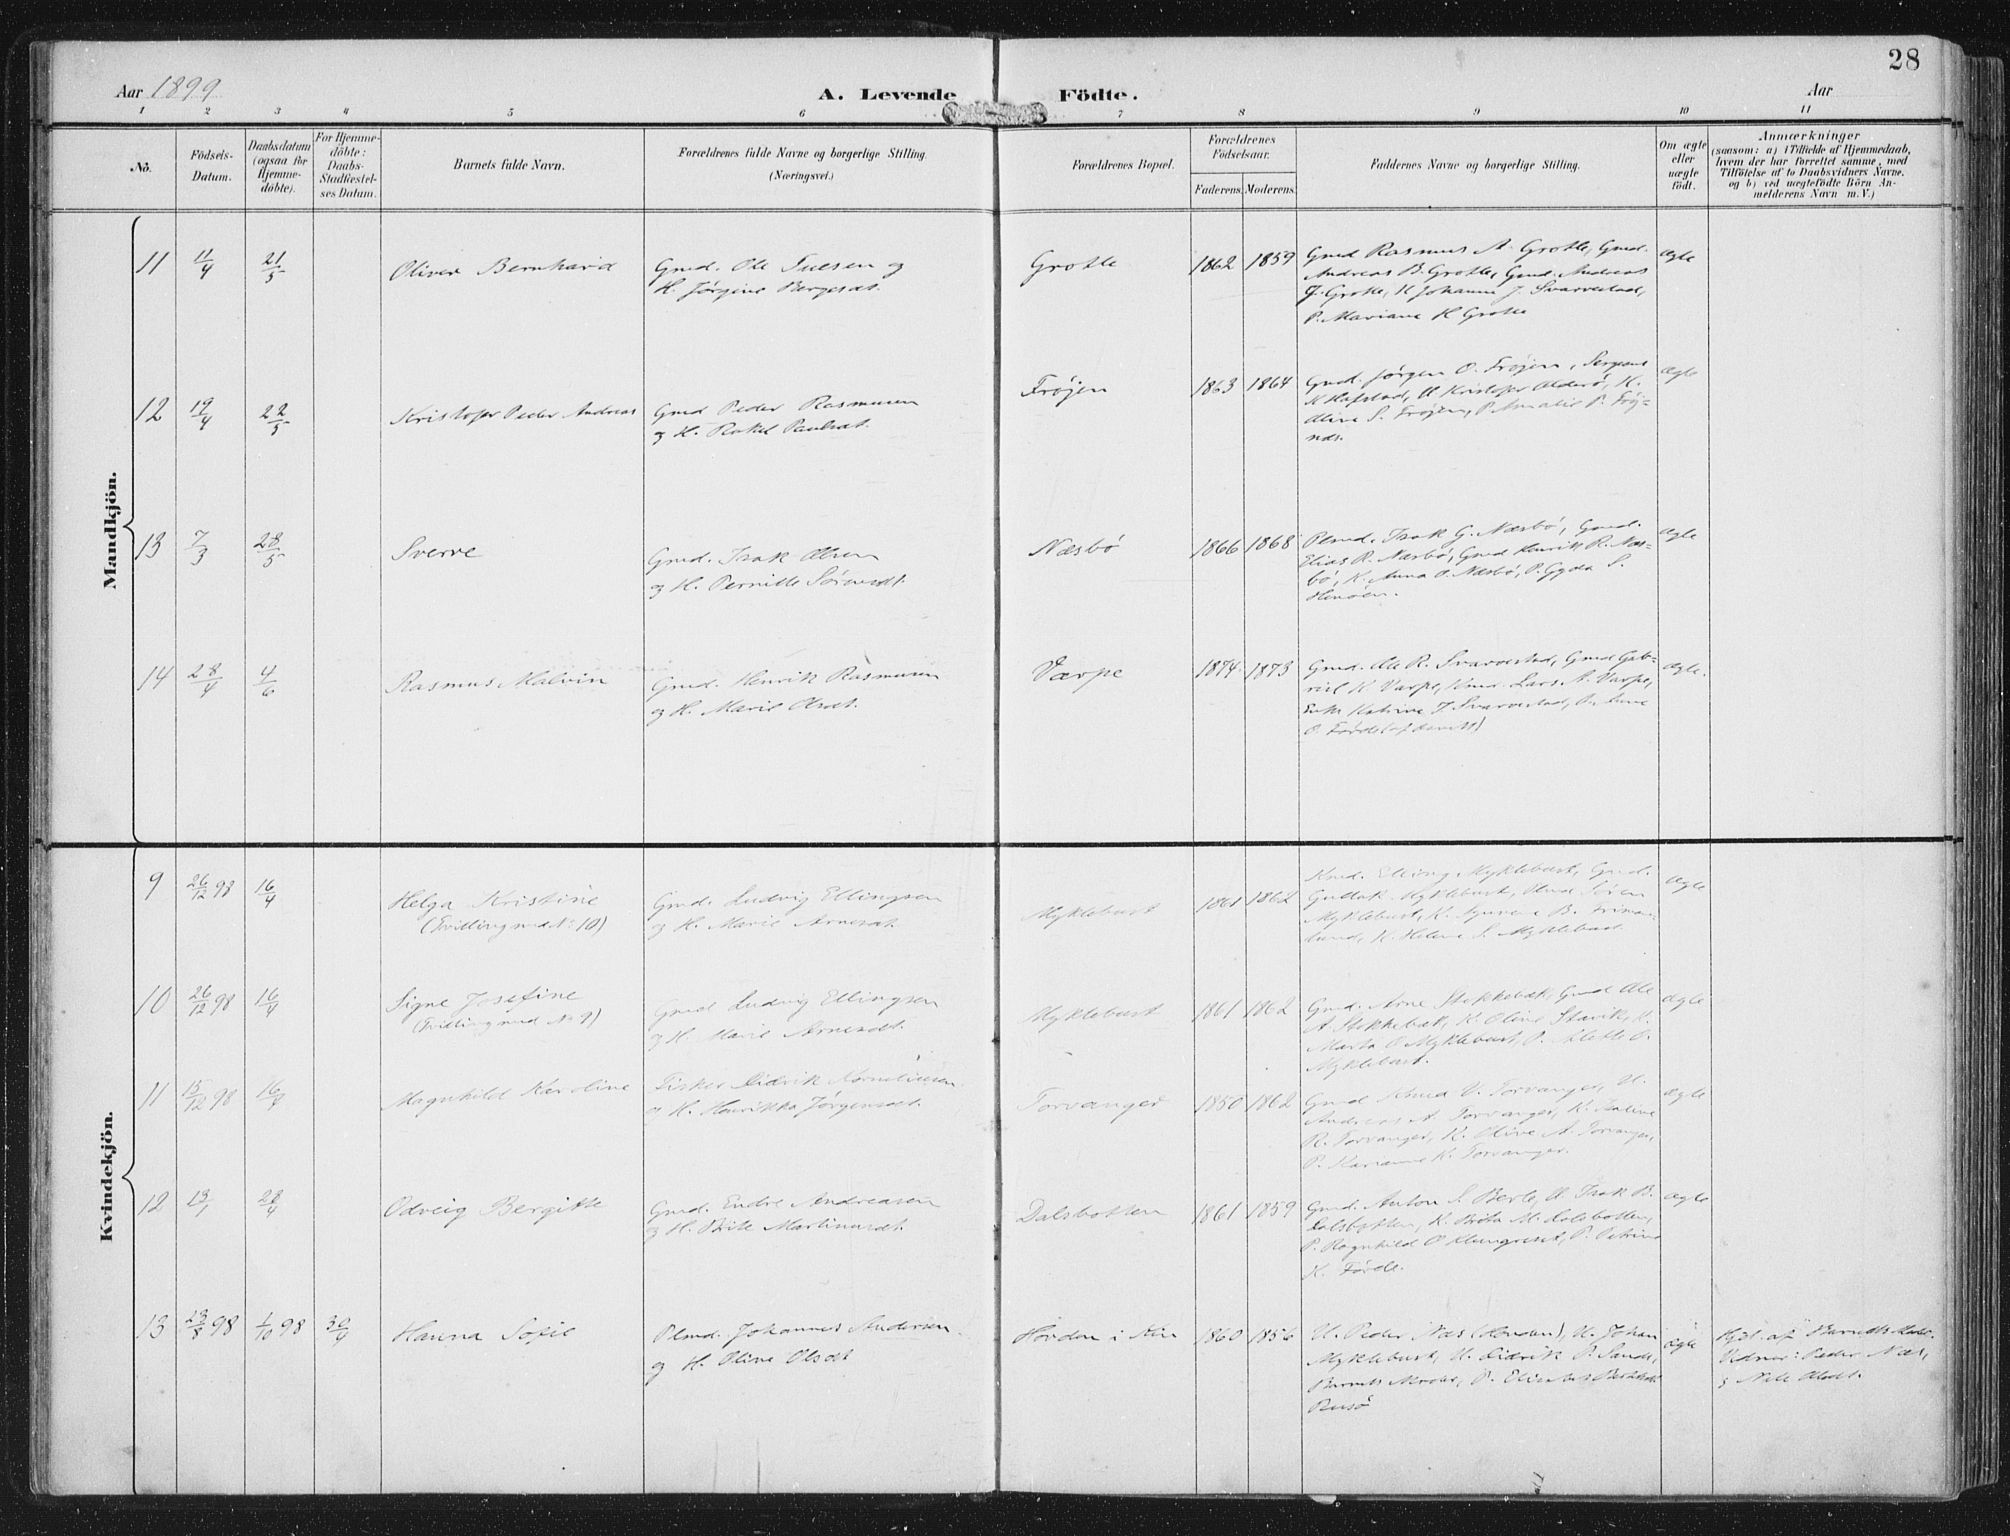 28
Aar 1899
A. Levende
Födte.
Aar
1 2 3 4 5 6 7 8 9 10 11
No.
Födsels-
Datum.
Daabsdatum
(ogsaa for
Hjemme-
döbte).
For Hjemme-
döbte:
Daabs-
Stadfæstel-
ses Datum.
Barnets fulde Navn.
Forældrenes fulde Navne og borgerlige Stilling
(Næringsvei.)
Forældrenes Bopæl.
Forældrenes
Födselsaar.
Faderens. Moderens.
Faddernes Navne og borgerlige Stilling.
Om ægte
eller
uægte
födt.
Anmærkninger
(saasom: a) i Tilfælde af Hjemmedaab,
hvem der har forrettet samme, med
Tilföielse af to Daabsvidners Navne.
og b) ved uægtefödte Börn An-
melderens Navn m. V.)
Mandkjön.
11 11/4 21/5 Oliver Bernhard
Gmd. Ole Tuesen og
H. Jørgine Bergesdt.
Grotle 1862 1859
Gmd Rasmus A. Grotle, Gmd.
Andreas B. Grotle, Gmd. Andreas
J. Grotle, K Johanne J. Svarvestad,
P. Mariane H Grotle
ægte
12 19/4 22/5 Kristofer Peder Andreas
Gmd Peder Rasmusen
og H. Rakel Paulsdt.
Frøjen 1863 1864
Gmd. Jørgen O. Frøjen, Sergeant
K Hafstad, U Kristofer Alderø, K.
Oline S. Frøjen, P Amalie P. Frøj-
nes.
ægte
13 7/3 28/5 Sverre
Gmd. Isak Olsen
og H. Pernille Sørensdt.
Næsbø 1866 1868
Plmd. Isak G. Næsbø, Gmd.
Elias R. Næsbø, Gmd Henrik R. Næs-
bø, K. Anna O. Næsbø, P. Gyda S.
Henøen.
ægte
14 28/4 4/6 Rasmus Malvin
Gmd. Henrik Rasmusen
og H. Marie Olsdt.
Varpe 1874 1873
Gmd. Ole R. Svarvestad, Gmd Gab-
riel K. Varpe, Kmd. Lars A. Varpe,
Enke Katrine J Svarvestad, P.
O. Førde
ægte.
Kvindekjön.
9 26/12 98 16/4 Helga Kristine
(Tvilling med No 10)
Gmd. Ludvig Ellingsen
og H. Marie Arnesdt.
Myklebust 1861 1862
Kmd. Elling Myklebust, Gmd.
Gullak Myklebust, Kmd Søren
Myklebust, K. B. Friman-
lund, K. Helene S. Myklebust.
ægte
10 26/12 98 16/4 Signe Josefine
(Tvilling med No 9)
Gmd Ludvig Ellingsen
og H. Marie Arnesdt.
Myklebust 1861 1862
Gmd. Arne Stokkebæk, Gmd Ole
A. Stokkebæk, K. Oline Stavik, K.
Marta O Myklebust, P. Alette O.
Myklebust.
ægte
11 15/12 98 16/4 Magnhild Karoline
Fisker Didrik Korneliusen
og H. Henrikka Jørgensdt.
Torvanger 1850 1862
Gmd Knud V. Torvanger, U.
Andreas A. Torvanger, K.
R. Torvanger, K. Oline A. Torvanger,
P. Karianne K. Torvanger.
ægte
12 13/1 23/4 Odveig Bergitte
Gmd. Endre Andreasen
og H. Brite Martinusdt.
Dalsbotten 1861 1859
Gmd. Anton S. Berle, U Isak B.
Dalsbotten, K. Brita M. Dalsbotten,
P. Ragnhild O Klungreset, P. Petrine
K. Førde.
ægte
13 23/8 98 1/10 98 30/4 Hanna Sofie
Plmd. Johannes Andersen
og H. Oline Olsdt
Hovden i Kin 1860 1856
U. Peder Næs (Hovden), U. Johan
Myklebust, U. Didrik P. Sande,
Barnets Moder, P. Elisabet
Husø
ægte
Hjd. af Barnets Moder.
Vidner: Peder Næs,
og Nille Olsdt.